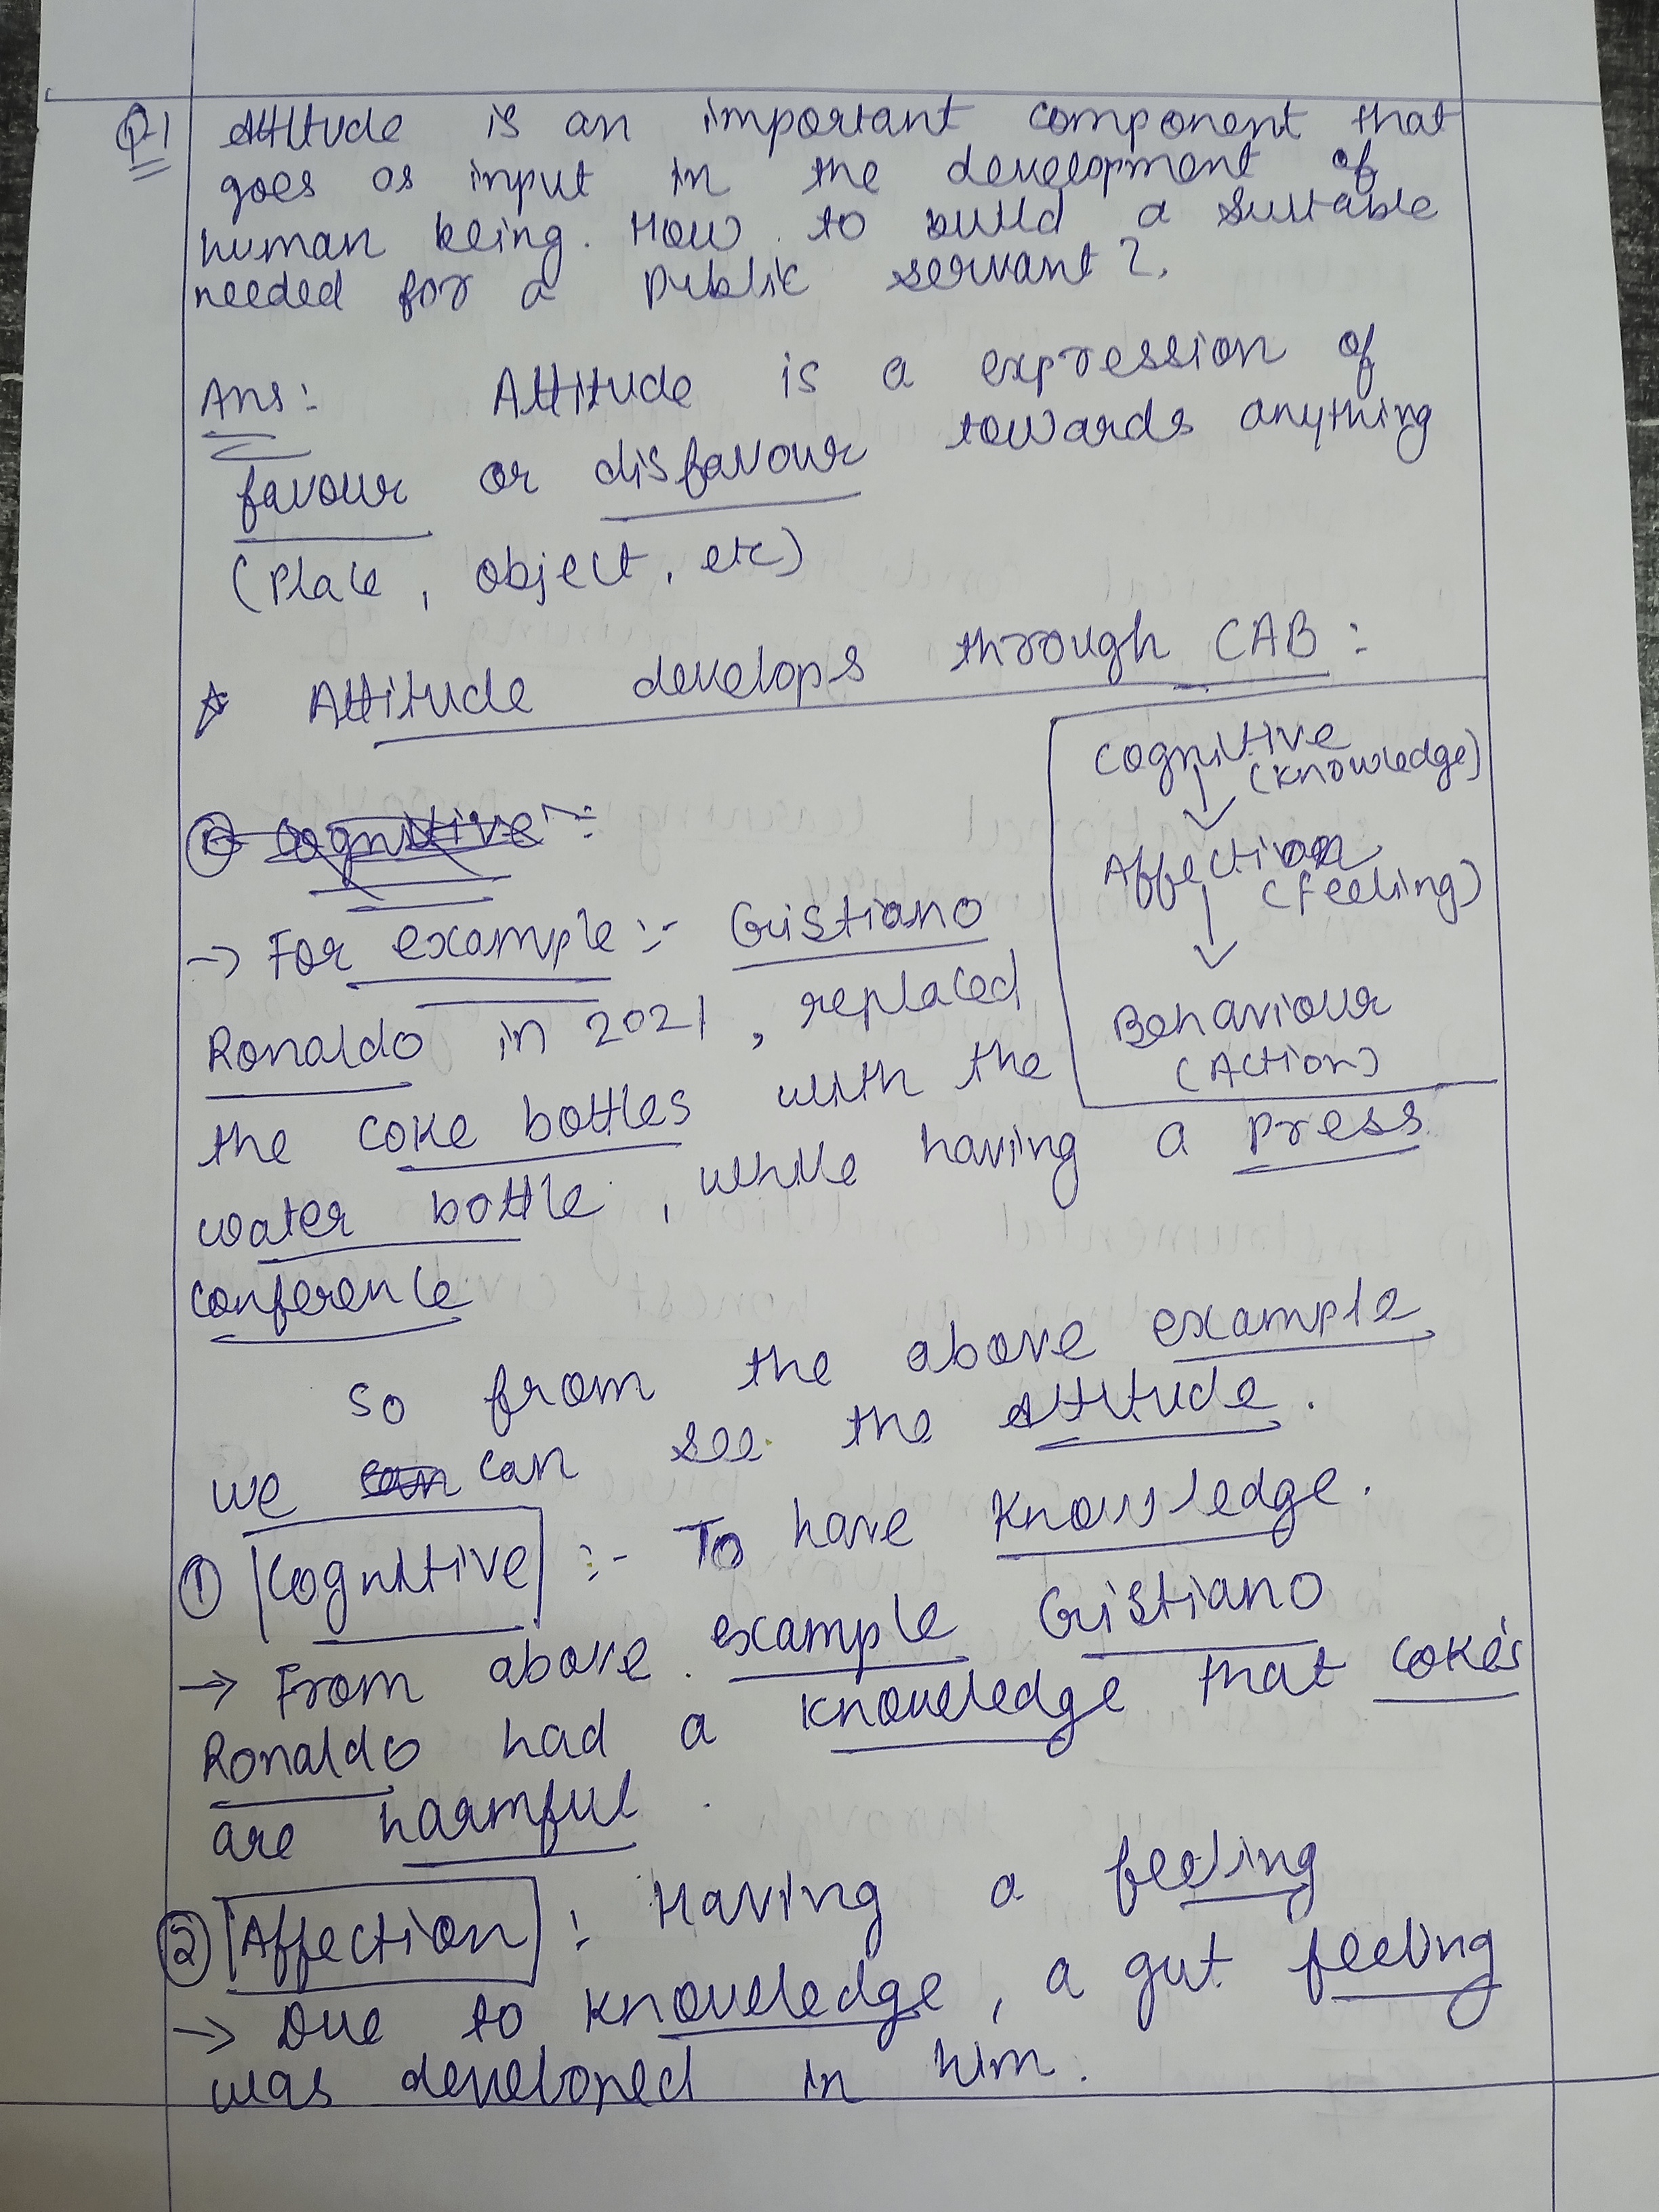 Q1 Attitude is an important component that
goes as input in the development of
human being. How to build a suitable
needed for a public servant ?.
Ans:- Attitude is a expression of
favour or disfavour towards anything
(Place, object, etc)
☆ Attitude develops through CAB :
Cognitive
(Knowledge)
↓
Affection
(feeling)
↓
Behaviour
(Action)
→ For example :- Cristiano
Ronaldo in 2021, replaced
the coke bottles with the
water bottle, while having a press
conference.
So from the above example
we can can see the attitude.
① Cognitive :- To have knowledge.
→ From above example Cristiano
Ronaldo had a knowledge that coke's
are harmful.
② Affection : Having a feeling
→ Due to knowledge, a gut feeling
was developed in him.